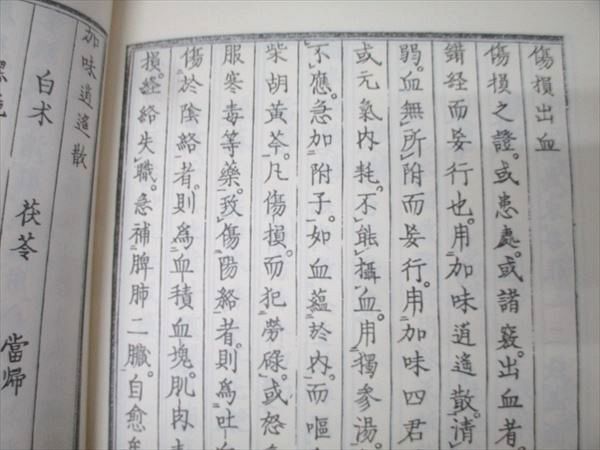 傷損出血
傷損之證。或患處。或諸竅。出血者。
錯経而妄行也。用加味逍遙散。清
弱。血無所附而妄行。用加味四君
或元氣内耗。不能攝血。用獨参湯。
不應。急加附子。如血蘊於内。而嘔
柴胡黄芩。凡傷損。而犯勞碌。或怒
服寒毒等藥。致傷陽絡者。則為吐
傷於陰絡者。則為血積血塊。肌肉
損。経絡失職。急補脾肺二臓。自愈
加味逍遙散
白朮 茯苓 當帰